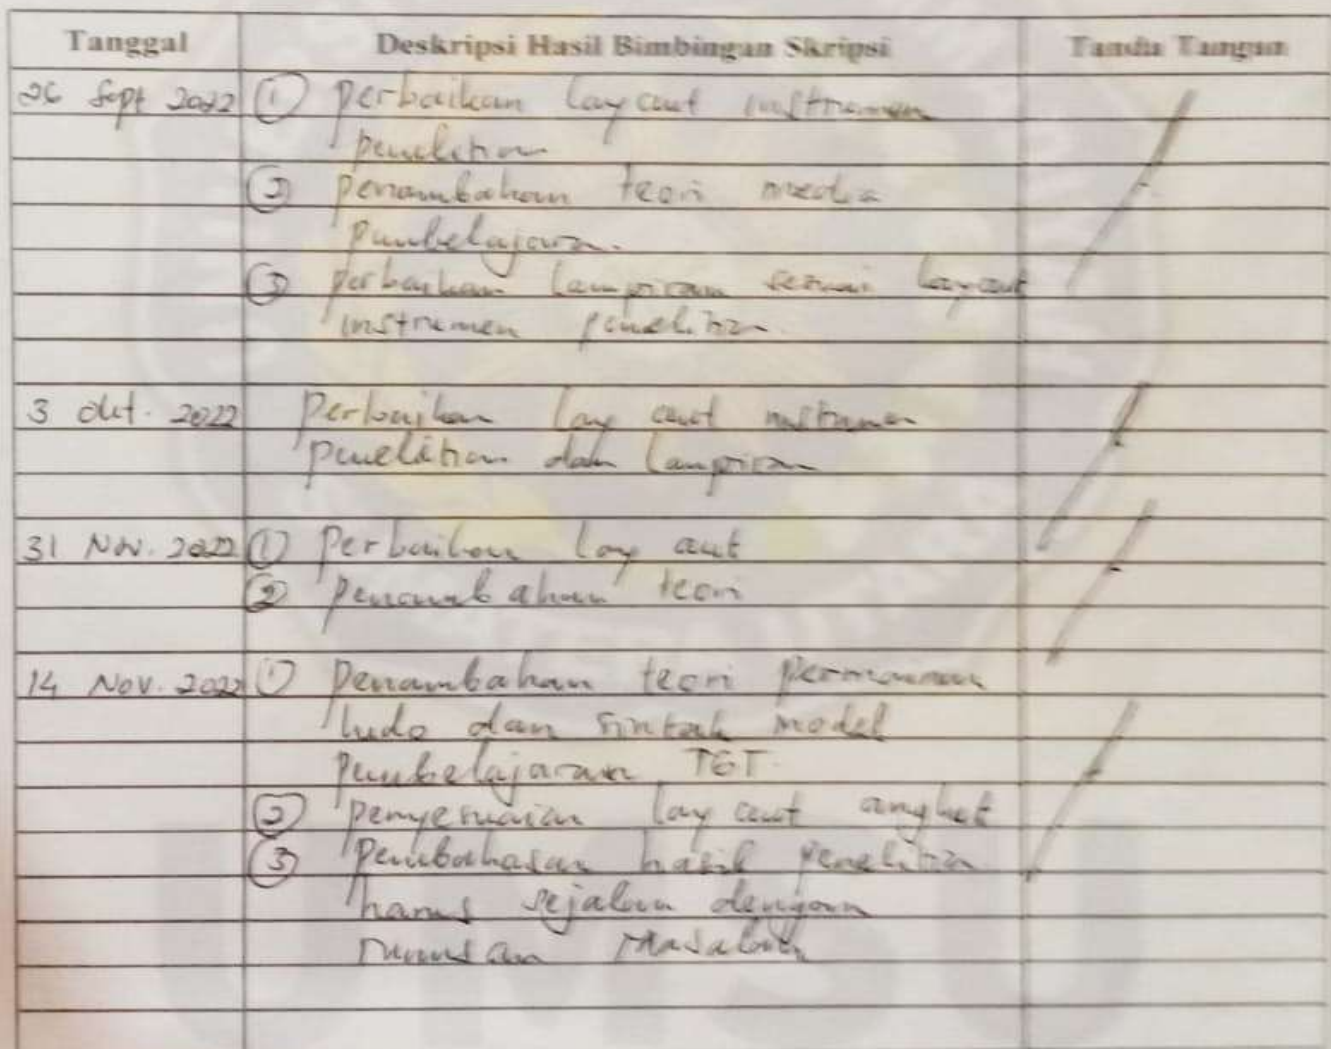 Tanggal Deskripsi Hasil Bimbingan Skripsi Tanda Tangan
26 Sept 2022 ① perbaikan lay out instrumen
penelitian
② penambahan teori media
pembelajaran.
③ perbaikan lampiran sesuai layout
instrumen penelitian.
3 okt. 2022 Perbaikan lay out instrumen
penelitian dan lampiran
31 Nov. 2022 ① Perbaikan lay out
② penambahan teori
14 Nov. 2022 ① penambahan teori permainan
ludo dan sintak model
pembelajaran TGT.
② penyesuaian lay out angket
③ pembahasan hasil penelitian
harus sejalan dengan
rumusan masalah
UMSU